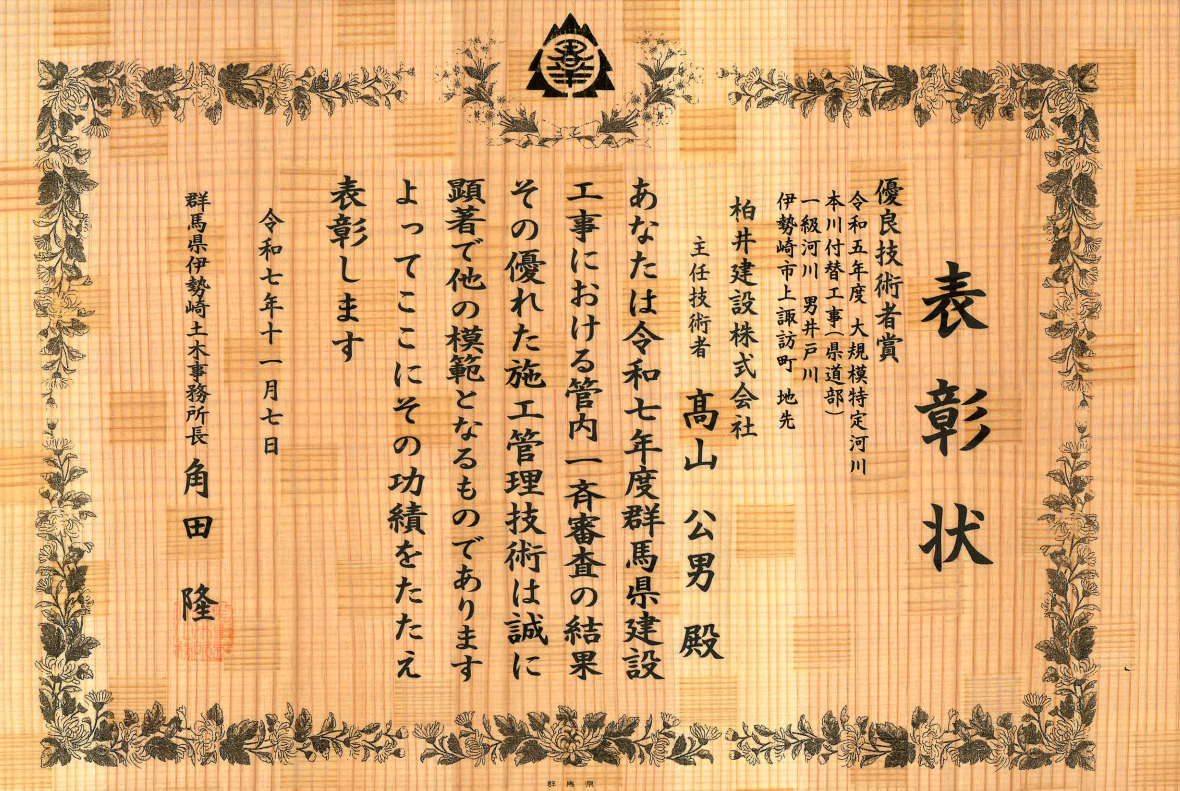 表彰状
優良技術者賞
令和五年度 大規模特定河川
本川付替工事(県道部)
一級河川 男井戸川
伊勢崎市上諏訪町 地先
柏井建設株式会社
主任技術者 髙山 公男 殿
あなたは令和七年度群馬県建設
工事における管内一斉審査の結果
その優れた施工管理技術は誠に
顕著で他の模範となるものであります
よってここにその功績をたたえ
表彰します
令和七年十一月七日
群馬県伊勢崎土木事務所長 角田 隆
群馬県